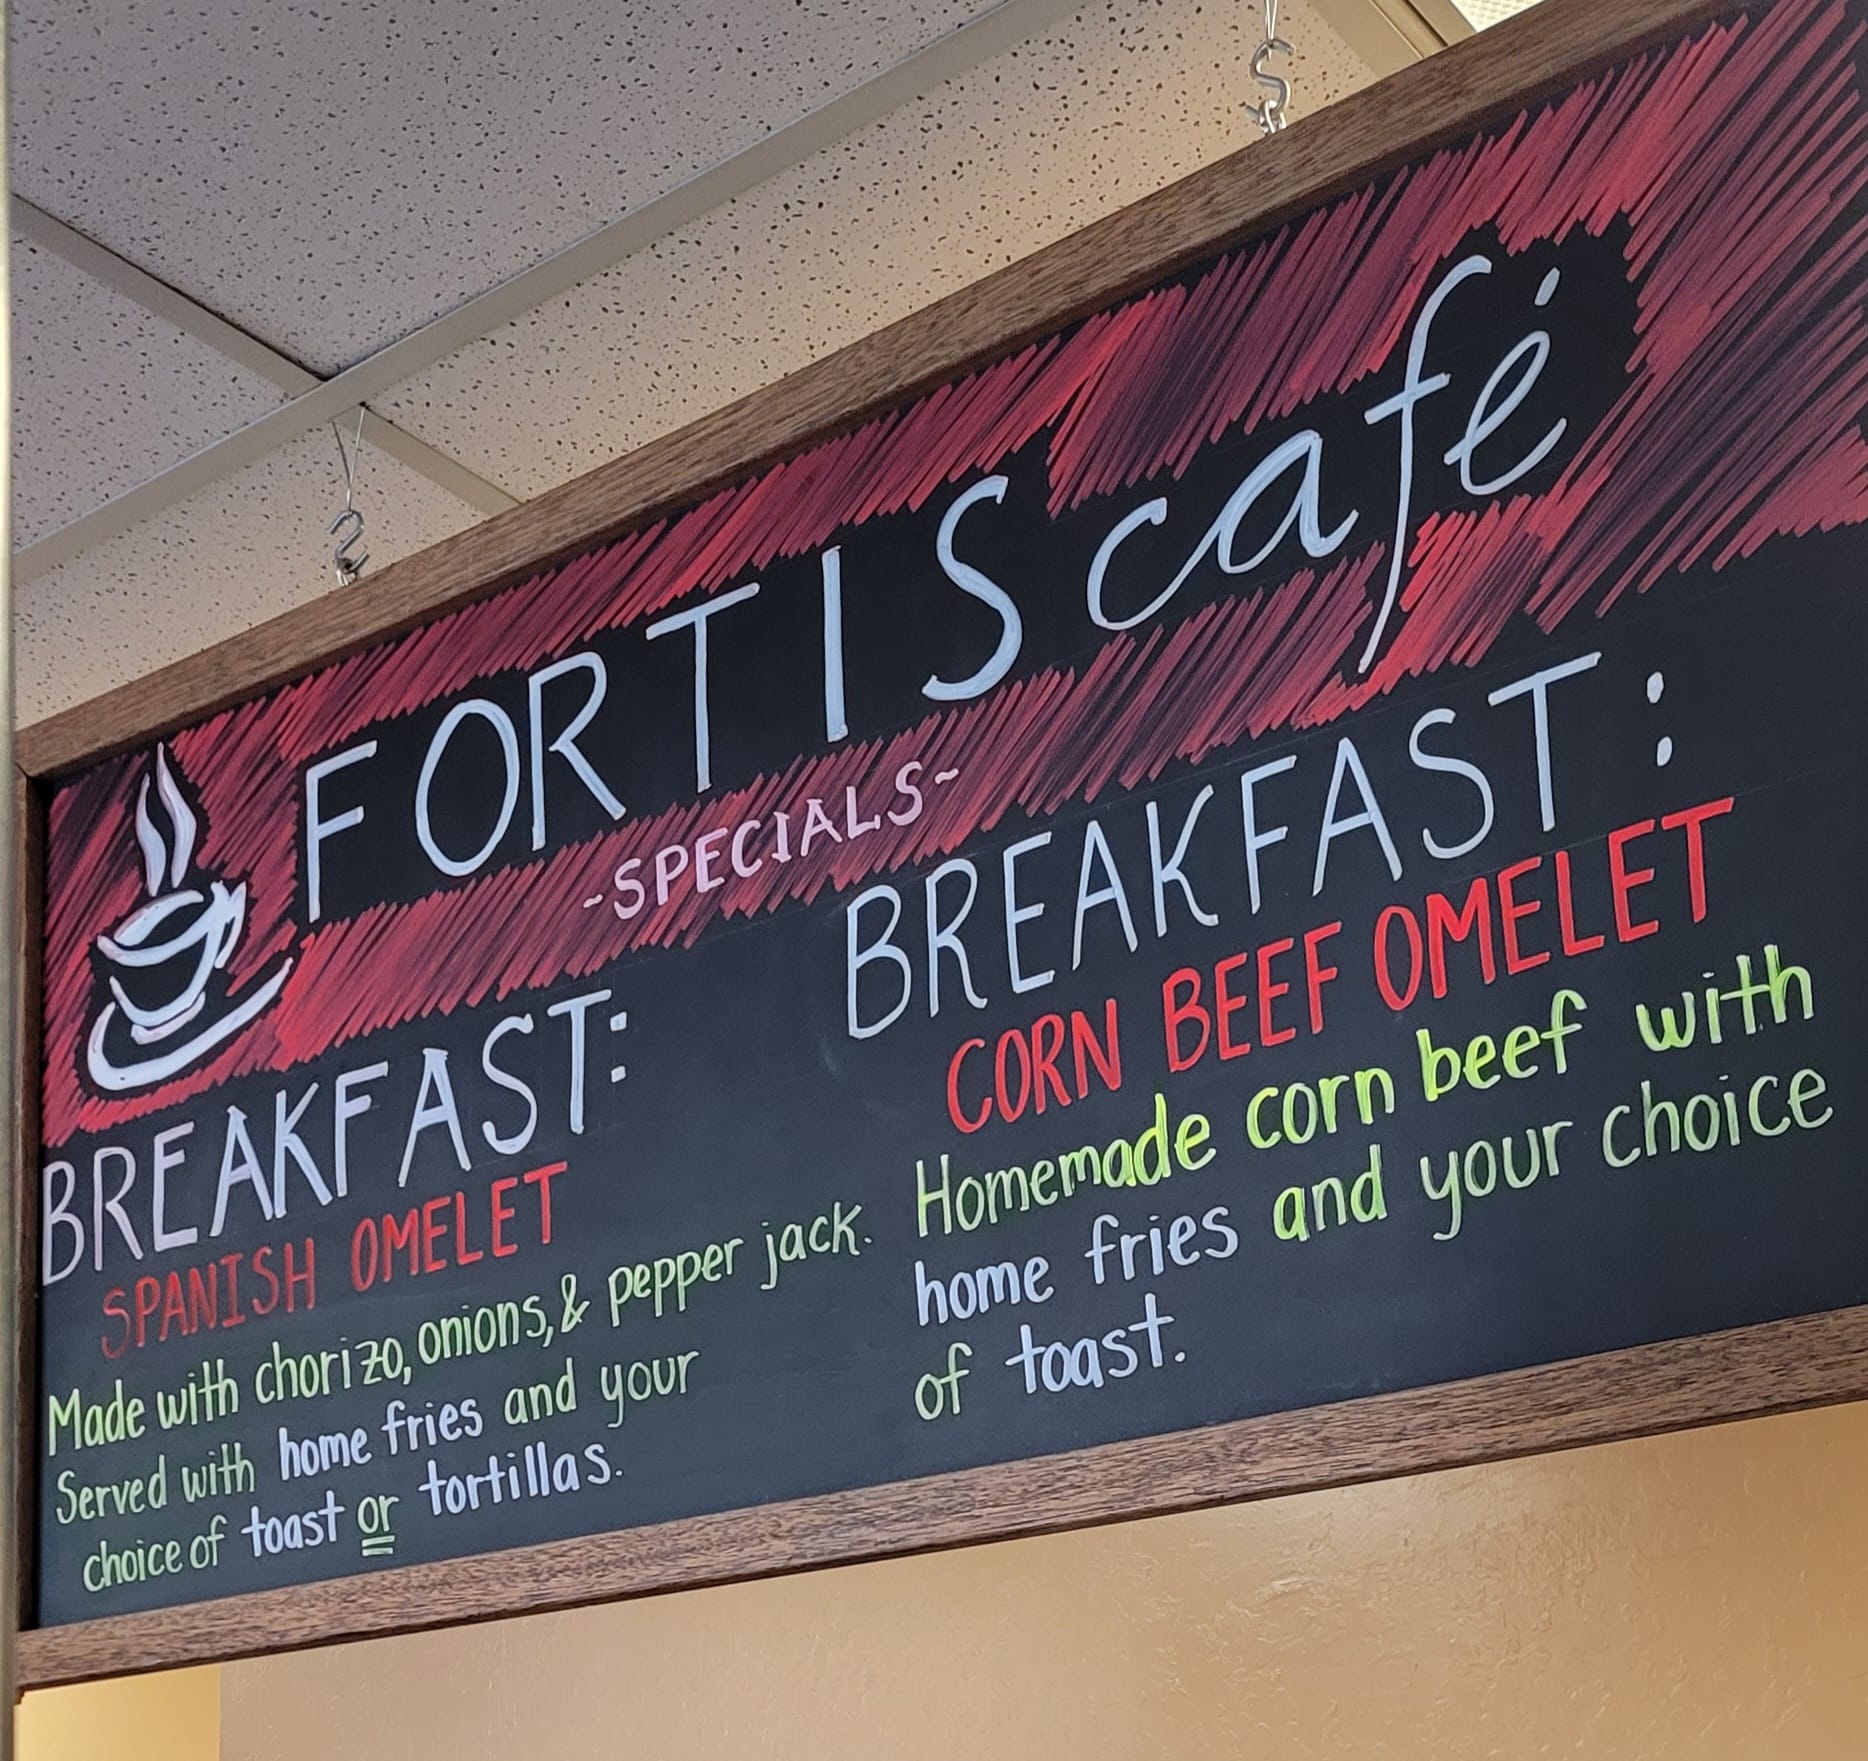 FORTIS café
~SPECIALS~
BREAKFAST:
SPANISH OMELET
Made with chorizo, onions, & pepper jack.
Served with home fries and your
choice of toast or tortillas.
BREAKFAST:
CORN BEEF OMELET
Homemade corn beef with
home fries and your choice
of toast.